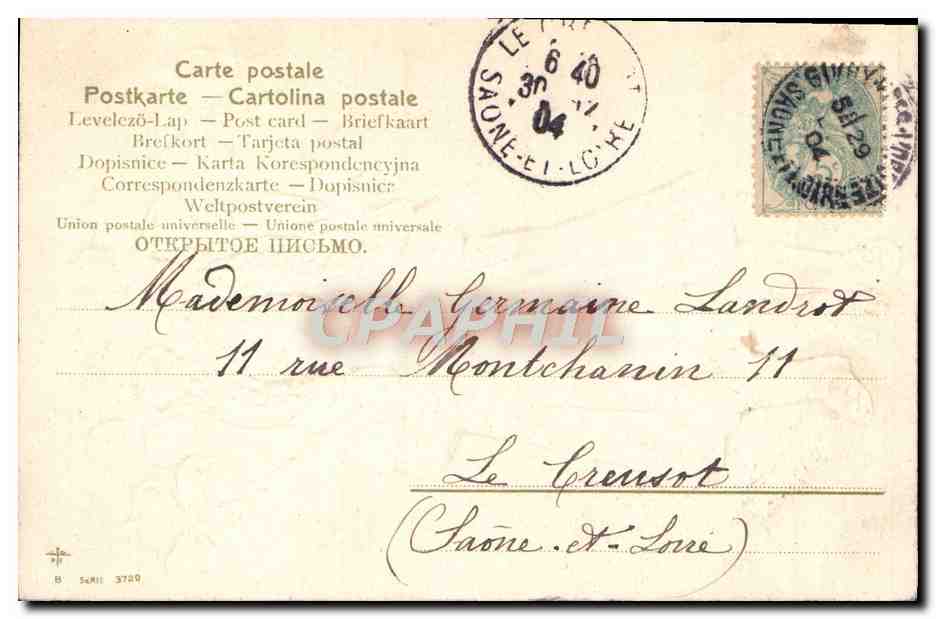 Carte postale
Postkarte — Cartolina postale
Levelezö-Lap — Post card — Briefkaart
Brefkort — Tarjeta postal
Dopisnice — Karta Korespondencyjna
Correspondenzkarte — Dopisnica
Weltpostverein
Union postale universelle — Unione postale universale
ОТКРЫТОЕ ПИСЬМО.
6 40
30
04
SAONE-ET-LOIRE
GIVRY
29
04
SAONE-ET-LOIRE
Mademoiselle Germaine Landrot
CPAPHIL
11 rue Montchanin 11
Le Creusot
(Saône-et-Loire)
B SERIE 3720